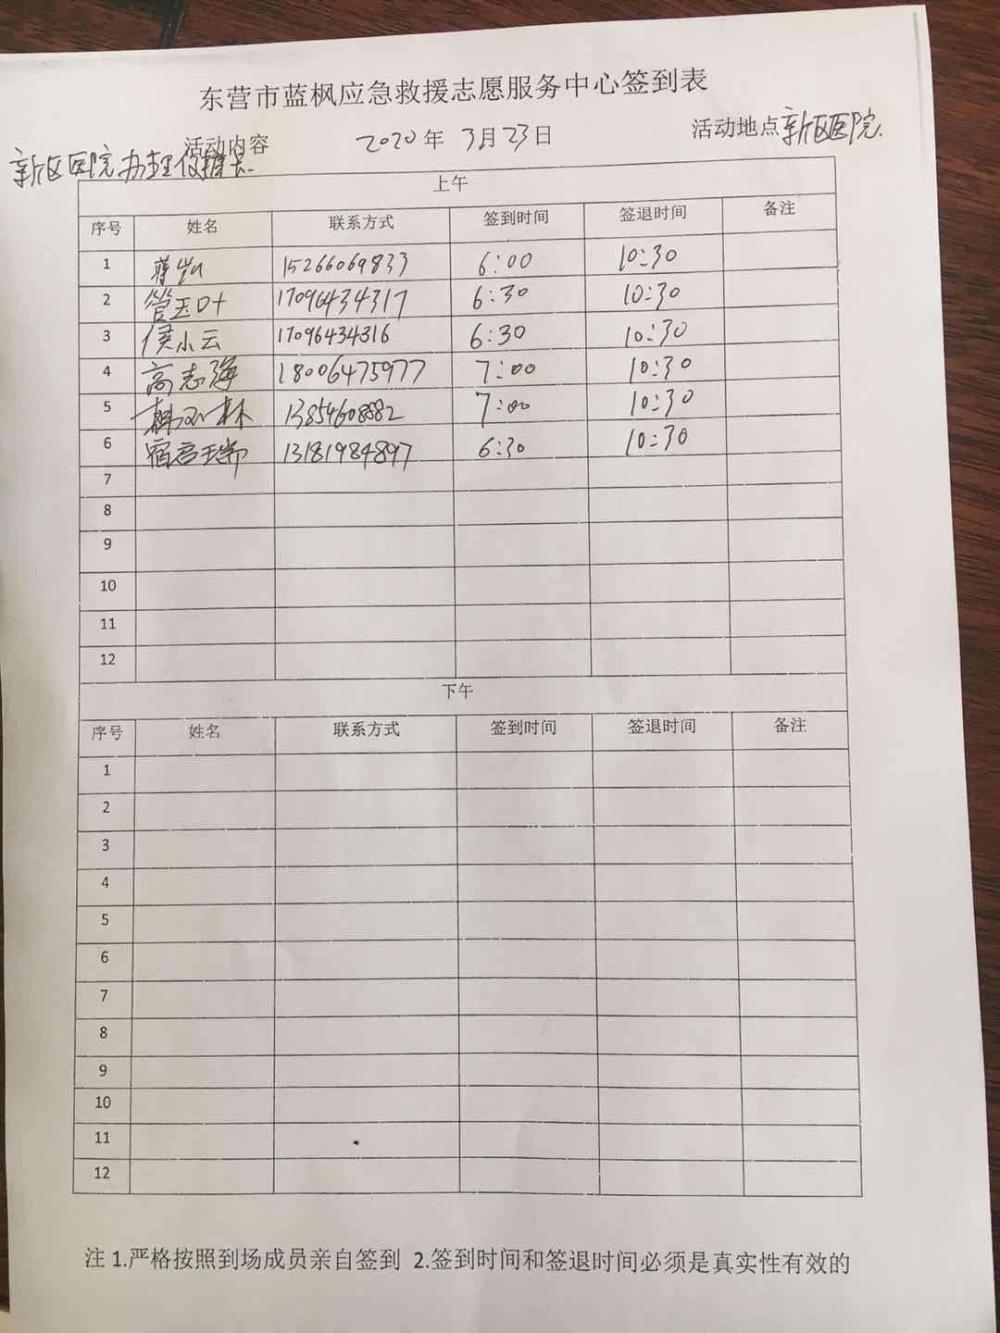 东营市蓝枫应急救援志愿服务中心签到表
活动内容 2020年 3月23日 活动地点 新区医院.
新区医院办理
上午
序号 姓名 联系方式 签到时间 签退时间 备注
1 蒋 15266069833 6:00 10:30
2 管玉叶 17096434317 6:30 10:30
3 侯小云 17096434316 6:30 10:30
4 高志海 18006475977 7:00 10:30
5 林 13854608882 7:00 10:30
6 宿君瑞 13181984897 6:30 10:30
7
8
9
10
11
12
下午
序号 姓名 联系方式 签到时间 签退时间 备注
1
2
3
4
5
6
7
8
9
10
11
12
注 1.严格按照到场成员亲自签到 2.签到时间和签退时间必须是真实性有效的